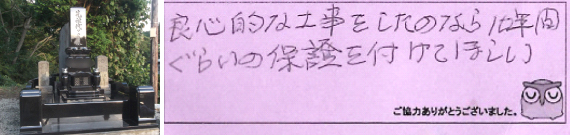 良心的な工事をしたのなら10年間
ぐらいの保證を付けてほしい
ご協力ありがとうございました。